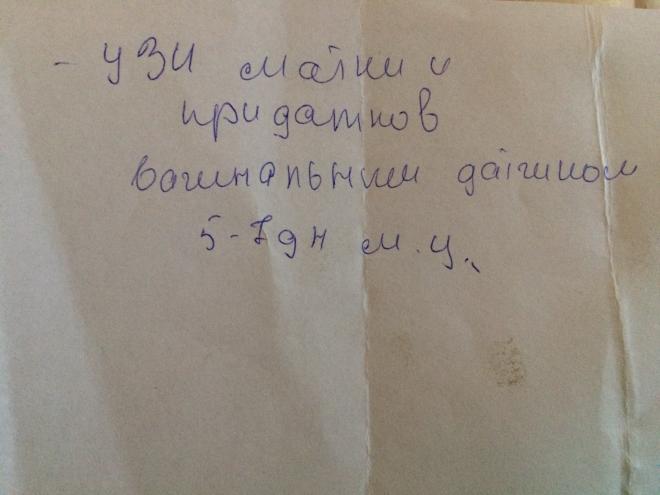 - УЗИ матки и
придатков
вагинальным датчиком
5-7 дн м.ц.